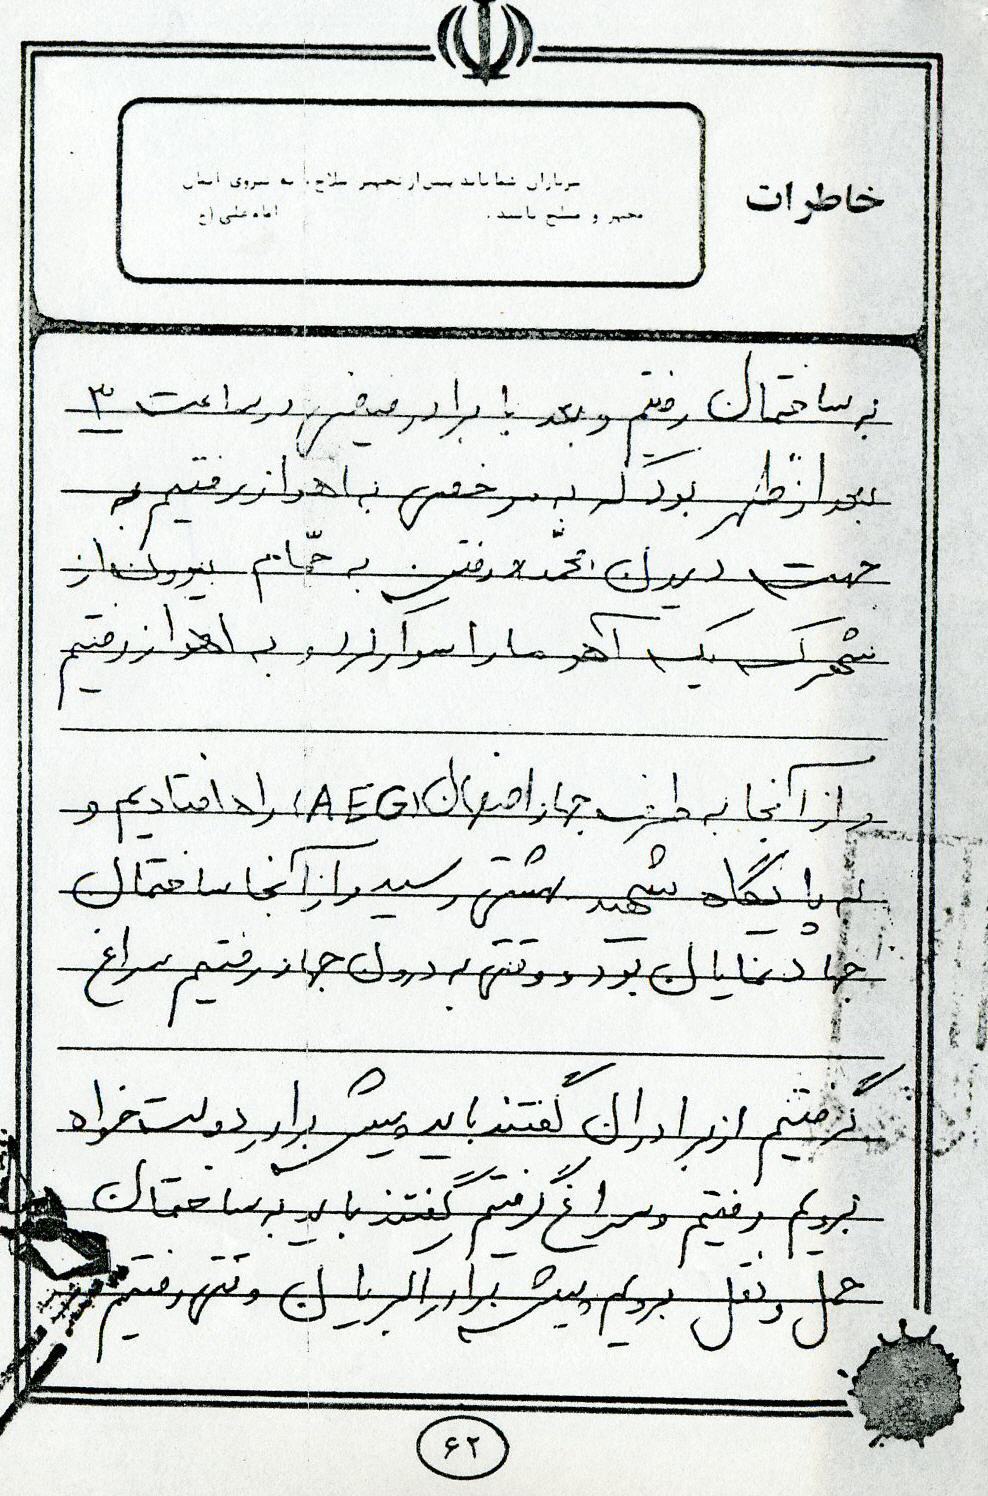 خاطرات
سربازان شما باید پس از تجهیز سلاح، به نیروی ایمان
مجهز و مسلح باشند. امام علی (ع)
به ساختمان رفتیم و بعد با برادر در ساعت ۳
بعد از ظهر بود که به مرخصی به اهواز رفتیم به
جهت دیدن محمد و رفتن به حمام بیرون از
شهرک یک آهو ما را سوار کرد و به اهواز رفتیم
و از آنجا به طرف جهاد اصفهان (AEG) راه افتادیم و
به پایگاه شهید بهشتی رسید و از آنجا ساختمان
جهاد نمایان بود و وقتی به درون جهاد رفتیم سراغ
گرفتیم از برادران گفتند باید پیش برادر دولت‌خواه
برویم رفتیم و سراغ گرفتیم گفتند باید به ساختمان
حمل و نقل برویم پیش برادر اکبریان وقتی رفتیم
۶۲